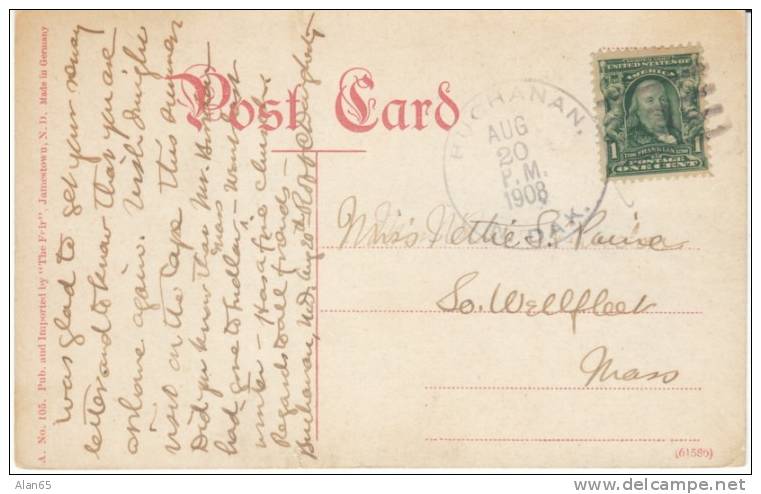 Post Card
BUCHANAN,
AUG
20
P.M.
1908
N. DAK.
UNITED STATES OF
AMERICA
1 FRANKLIN 1
POSTAGE
ONE CENT
Miss Nettie S. Paine
So. Wellfleet
Mass
(61580)
A. No. 105. Pub. and Imported by "The Fair", Jamestown, N. D. Made in Germany
was glad to get your
letter and to know that you are
at home again. Wish I might
visit on the Cape this summer
Did you know that Mr.
had gone to Mass - Went last
winter - Has a fine church.
Regards to all friends -
Buchanan, N.D. Aug 20th
Alan65
www.delcampe.net